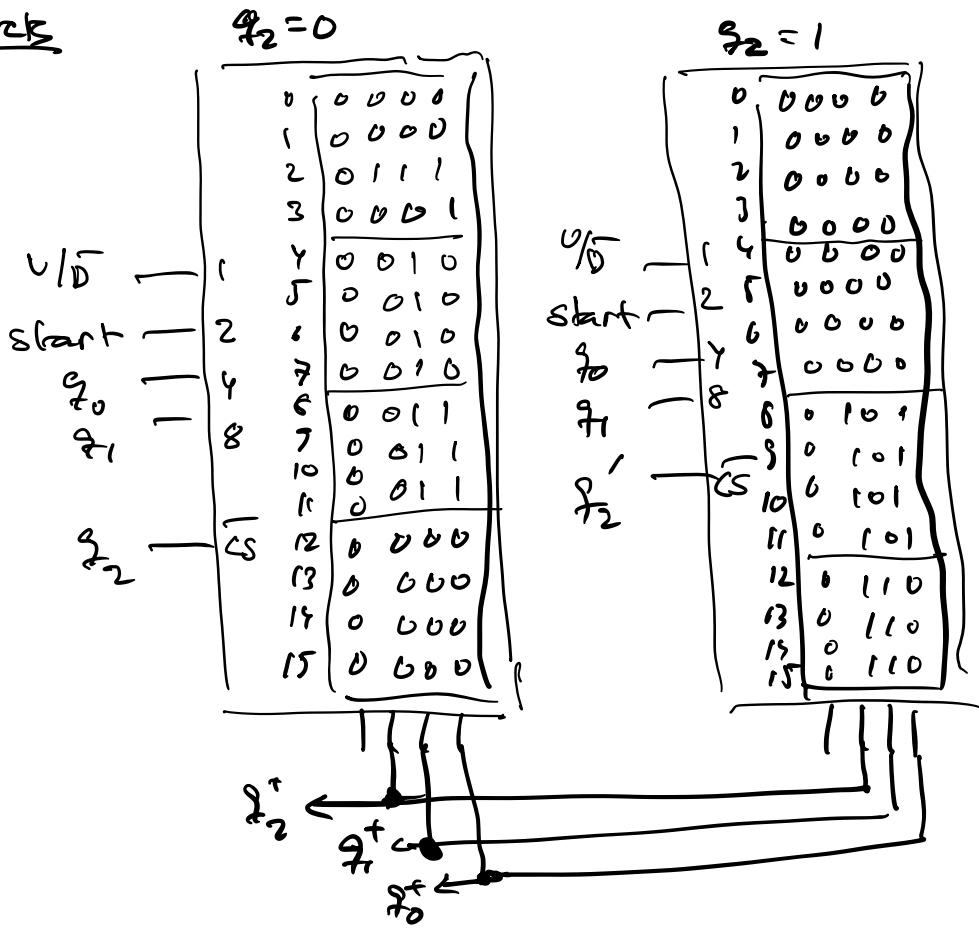 q2 = 0
0 0 0 0 0
1 0 0 0 0
2 0 1 1 1
3 0 0 0 1
4 0 0 1 0
5 0 0 1 0
6 0 0 1 0
7 0 0 1 0
8 0 0 1 1
9 0 0 1 1
10 0
11 0 0 1 1
12 0 0 0 0
13 0 0 0 0
14 0 0 0 0
15 0 0 0 0
U/D̅ 1
start 2
q0 4
q1 8
q2 C̅S̅
q2 = 1
0 0 0 0 0
1 0 0 0 0
2 0 0 0 0
3 0 0 0 0
4 0 0 0 0
5 0 0 0 0
6 0 0 0 0
7 0 0 0 0
8 0 1 0 1
9 0 1 0 1
10 0 1 0 1
11 0 1 0 1
12 0 1 1 0
13 0 1 1 0
14 0
15 0 1 1 0
U/D̅ 1
start 2
q0 4
q1 8
q2' C̅S̅
q2+
q1+
q0+